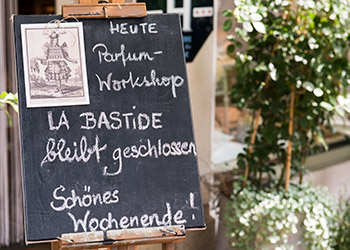 HEUTE
Parfum-
Workshop
LA BASTIDE
bleibt geschlossen
Schönes
Wochenende!